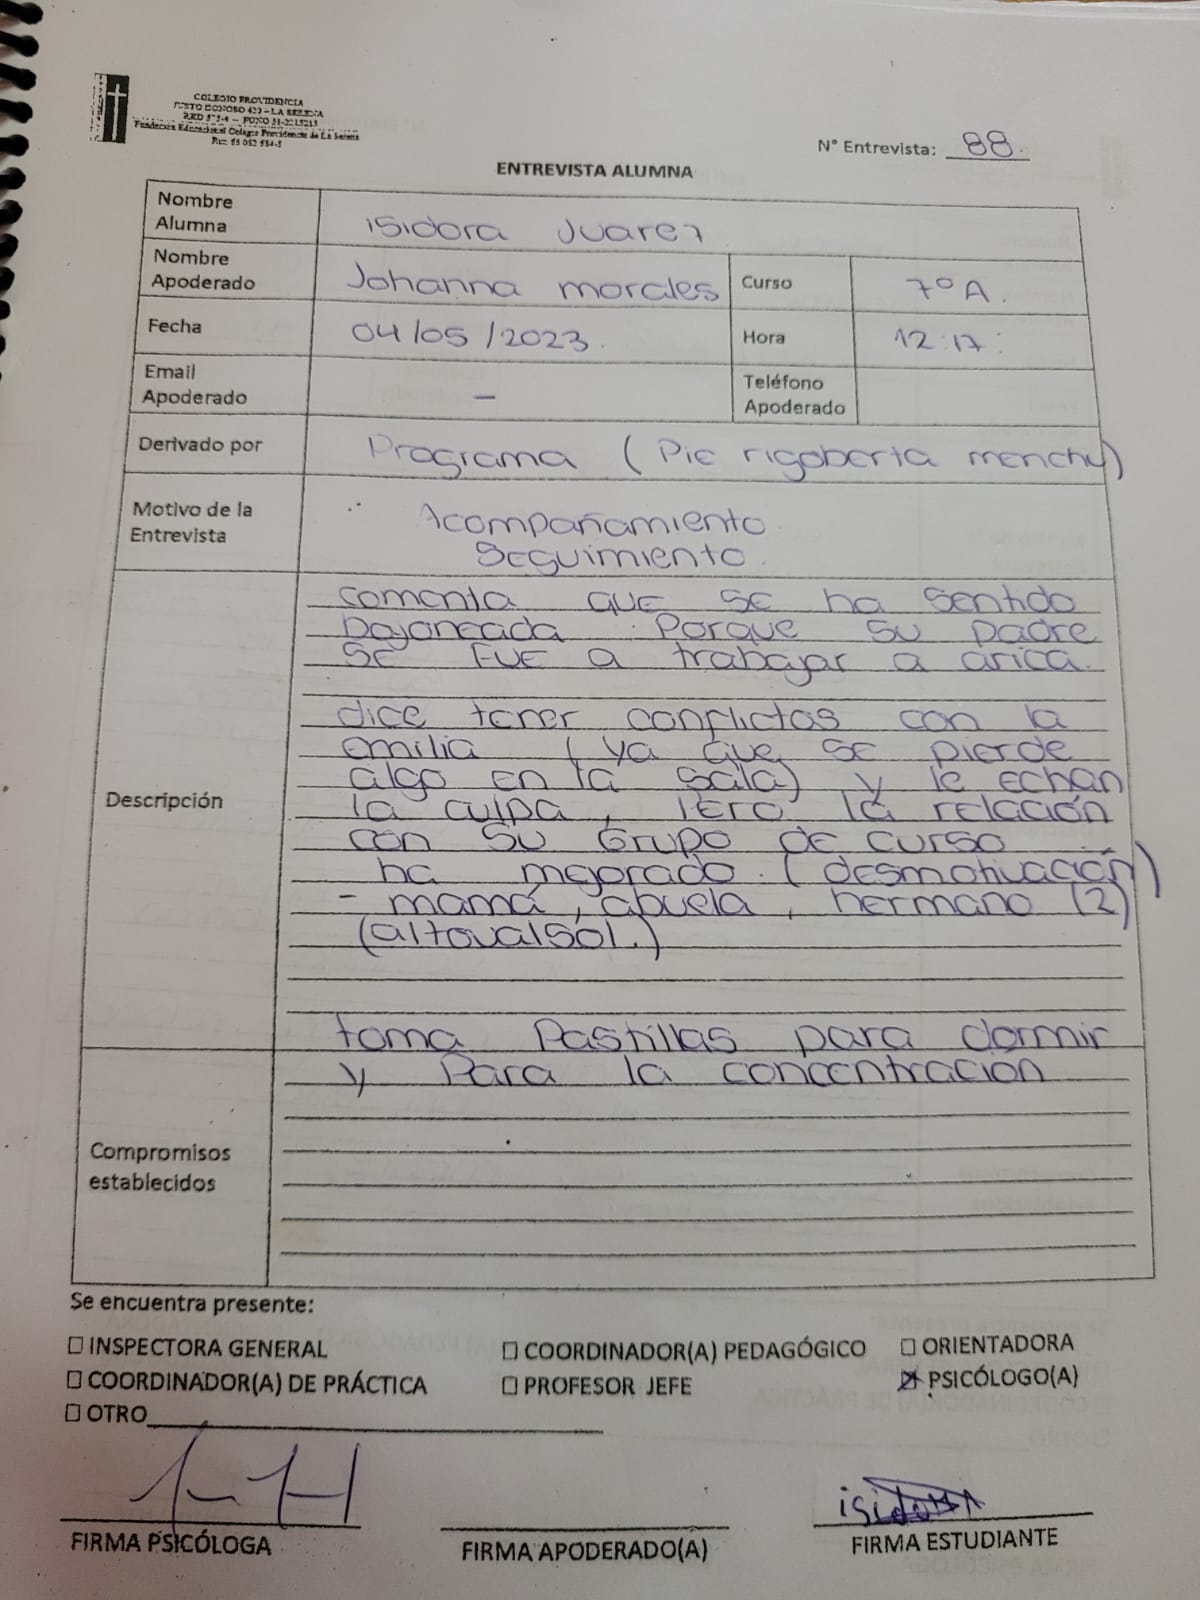 COLEGIO PROVIDENCIA
JUSTO DONOSO 420 – LA SERENA
Fundación Educacional Colegio Providencia de La Serena
N° Entrevista: 88.
ENTREVISTA ALUMNA
Nombre Alumna isidora Juarez
Nombre Apoderado Johanna morales Curso 7° A.
Fecha 04/05/2023. Hora 12:17
Email Apoderado – Teléfono Apoderado
Derivado por Programa (Pie rigoberta menchy)
Motivo de la Entrevista Acompañamiento
Seguimiento.
Descripción
comenta que se ha sentido
bajoneada porque su padre
se fue a trabajar a arica.
dice tener conflictos con la
emilia (ya que se pierde
algo en la sala) y le echan
la culpa, pero la relación
con su grupo de curso
ha mejorado. (desmotivación)
- mamá, abuela, hermano (2)
(altovalsol.)
toma Pastillas para dormir
y Para la concentracion
Compromisos establecidos
Se encuentra presente:
☐ INSPECTORA GENERAL ☐ COORDINADOR(A) PEDAGÓGICO ☐ ORIENTADORA
☐ COORDINADOR(A) DE PRÁCTICA ☐ PROFESOR JEFE ☒ PSICÓLOGO(A)
☐ OTRO
isidora
FIRMA PSICÓLOGA FIRMA APODERADO(A) FIRMA ESTUDIANTE